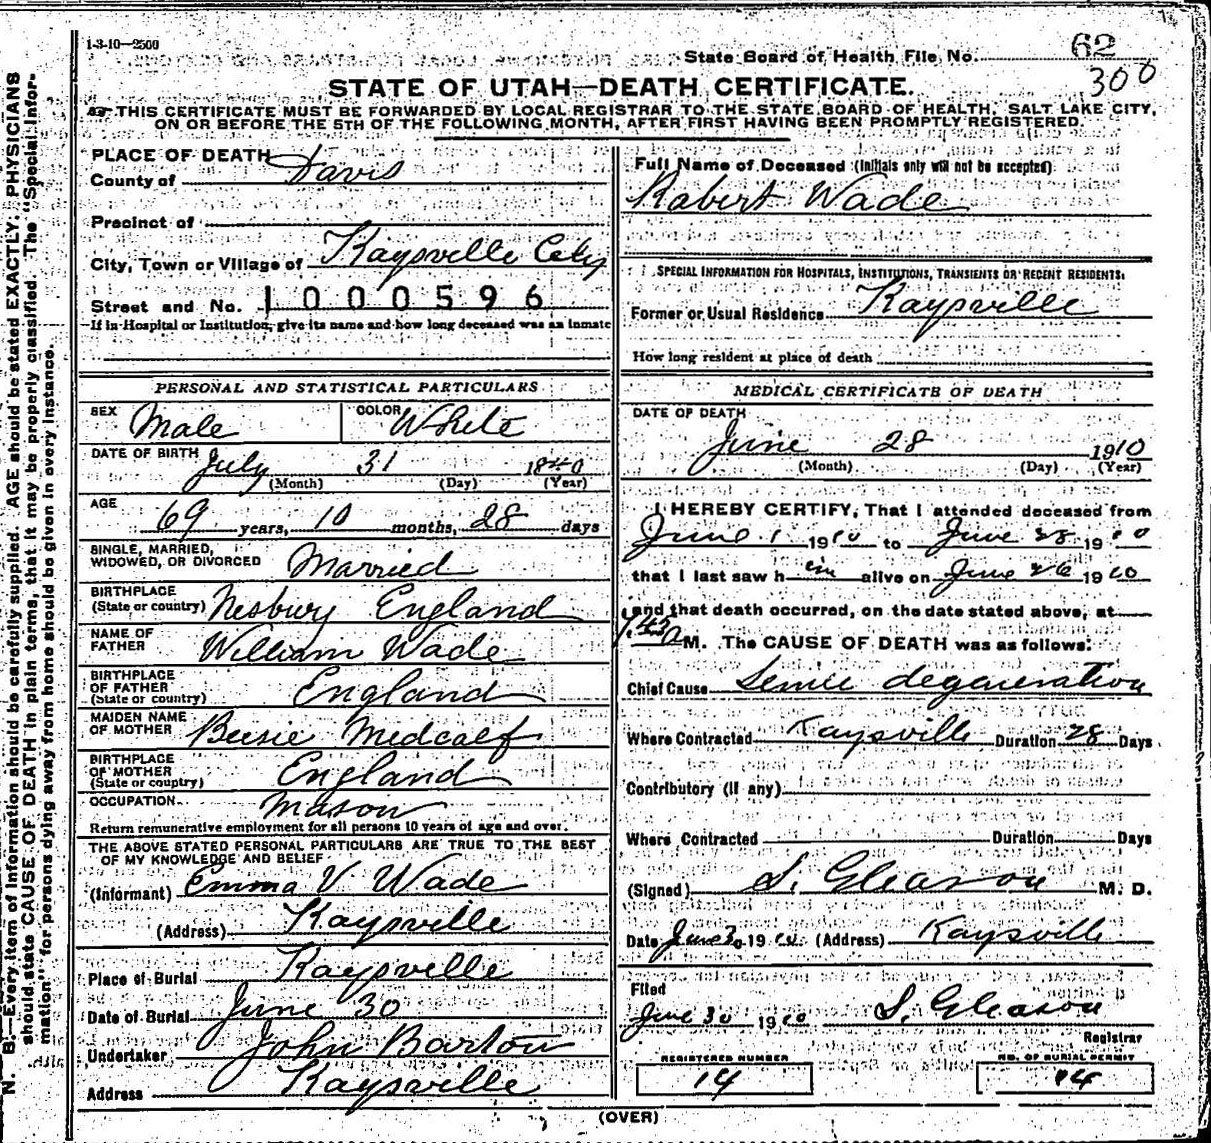 1-3-10—2500
State Board of Health File No. 62
300
STATE OF UTAH—DEATH CERTIFICATE.
THIS CERTIFICATE MUST BE FORWARDED BY LOCAL REGISTRAR TO THE STATE BOARD OF HEALTH, SALT LAKE CITY,
ON OR BEFORE THE 5TH OF THE FOLLOWING MONTH, AFTER FIRST HAVING BEEN PROMPTLY REGISTERED.
N. B.—Every item of information should be carefully supplied. AGE should be stated EXACTLY. PHYSICIANS
should state CAUSE OF DEATH in plain terms, that it may be properly classified. The "Special Infor-
mation" for persons dying away from home should be given in every instance.
PLACE OF DEATH
County of Davis
Precinct of
City, Town or Village of Kaysville City
Street and No. 1000596
If in Hospital or Institution, give its name and how long deceased was an inmate
Full Name of Deceased (Initials only will not be accepted)
Robert Wade
SPECIAL INFORMATION FOR HOSPITALS, INSTITUTIONS, TRANSIENTS OR RECENT RESIDENTS:
Former or Usual Residence Kaysville
How long resident at place of death
PERSONAL AND STATISTICAL PARTICULARS
SEX Male COLOR White
DATE OF BIRTH July 31 1840
(Month) (Day) (Year)
AGE 69 years, 10 months, 28 days
SINGLE, MARRIED,
WIDOWED, OR DIVORCED Married
BIRTHPLACE
(State or country) Nesbury England
NAME OF
FATHER William Wade
BIRTHPLACE
OF FATHER
(State or country) England
MAIDEN NAME
OF MOTHER Bessie Medcalf
BIRTHPLACE
OF MOTHER
(State or country) England
OCCUPATION Mason
Return remunerative employment for all persons 10 years of age and over.
THE ABOVE STATED PERSONAL PARTICULARS ARE TRUE TO THE BEST
OF MY KNOWLEDGE AND BELIEF
(Informant) Emma V. Wade
(Address) Kaysville
Place of Burial Kaysville
Date of Burial June 30
Undertaker John Barton
Address Kaysville
MEDICAL CERTIFICATE OF DEATH
DATE OF DEATH
June 28 1910
(Month) (Day) (Year)
I HEREBY CERTIFY, That I attended deceased from
June 1 1910 to June 28 1910
that I last saw h im alive on June 26 1910
and that death occurred, on the date stated above, at
M. The CAUSE OF DEATH was as follows:
Chief Cause Senile degeneration
Where Contracted Kaysville Duration 28 Days
Contributory (if any)
Where Contracted Duration Days
(Signed) S. Gleason M. D.
Date June 30 1910 (Address) Kaysville
Filed
June 30 1910 S. Gleason
Registrar
REGISTERED NUMBER
14
NO. OF BURIAL PERMIT
14
(OVER)